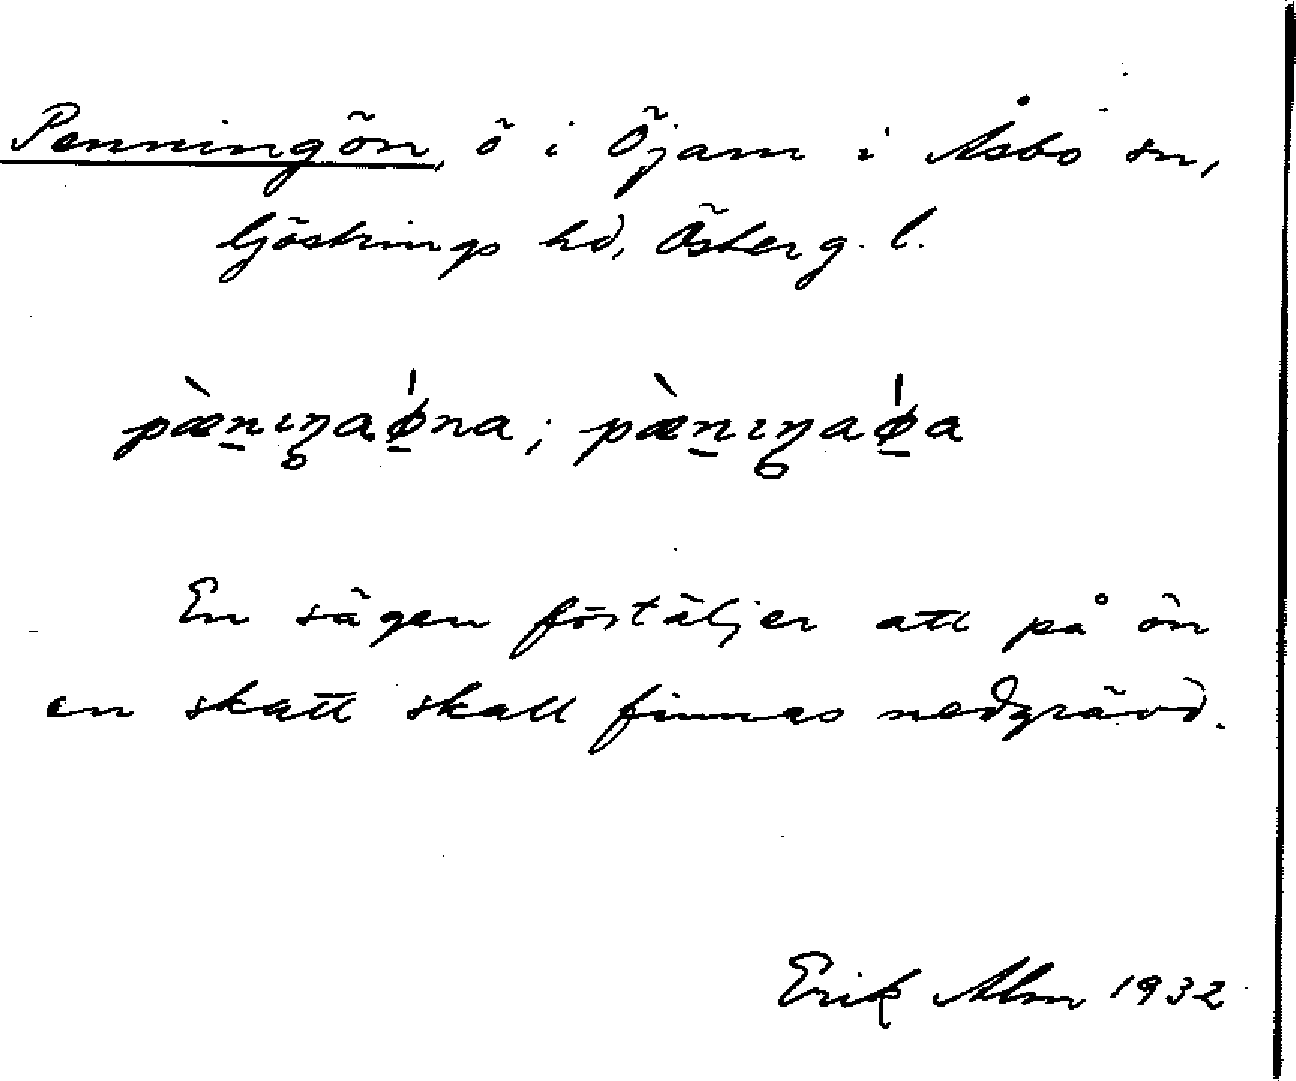 Penningön, ö i Öjam i Åsbo sn,
Göstrings hd, Österg. l.
pæ̀n̠ıŋaǿ̠na; pæ̀n̠ıŋaǿ̠a
En sägen förtäljer att på ön
en skatt skall finnas nedgrävd.
Erik Alm 1932